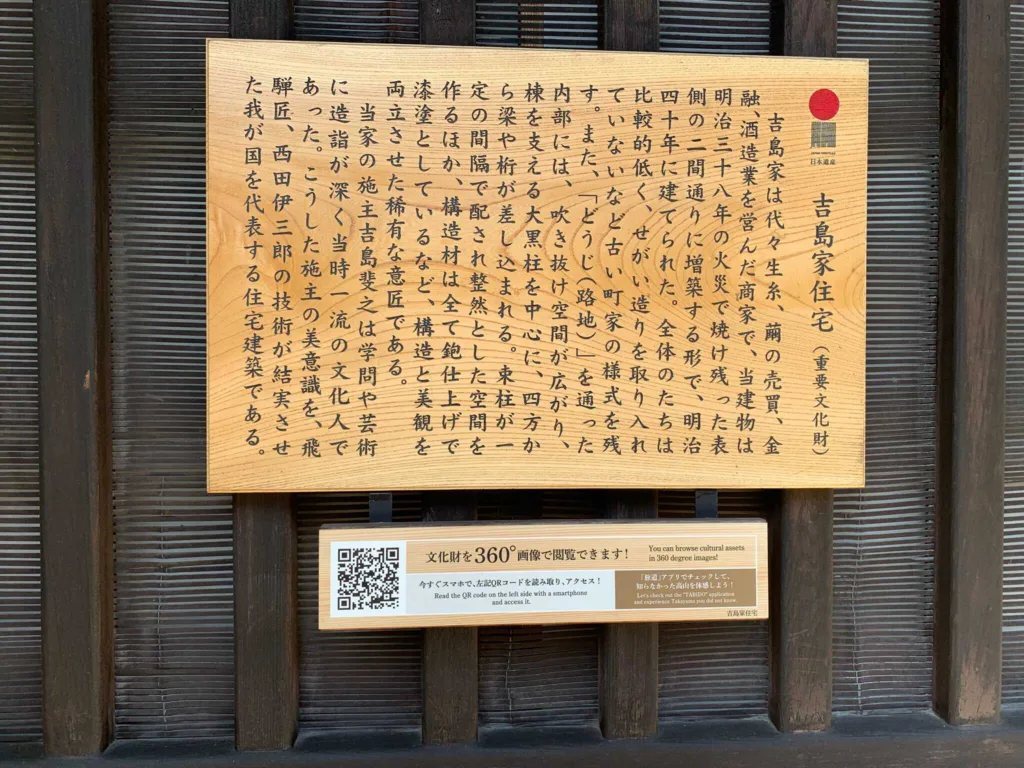 日本遺産
吉島家住宅(重要文化財)
吉島家は代々生糸、繭の売買、金
融、酒造業を営んだ商家で、当建物は
明治三十八年の火災で焼け残った表
側の二間通りに増築する形で、明治
四十年に建てられた。全体のたちは
比較的低く、せがい造りを取り入れ
ていないなど古い町家の様式を残
す。また、「どうじ(路地)」を通った
内部には、吹き抜け空間が広がり、
棟を支える大黒柱を中心に、四方か
ら梁や桁が差し込まれる。束柱が一
定の間隔で配され整然とした空間を
作るほか、構造材は全て鉋仕上げで
漆塗としているなど、構造と美観を
両立させた稀有な意匠である。
当家の施主吉島斐之は学問や芸術
に造詣が深く当時一流の文化人で
あった。こうした施主の美意識を、飛
騨匠、西田伊三郎の技術が結実させ
た我が国を代表する住宅建築である。
文化財を360°画像で閲覧できます!
You can browse cultural assets
in 360 degree images!
今すぐスマホで、左記QRコードを読み取り、アクセス!
Read the QR code on the left side with a smartphone
and access it.
「旅道」アプリでチェックして、
知らなかった高山を体感しよう!
Let's check out the "TABIDO" application
and experience Takayama you did not know.
吉島家住宅